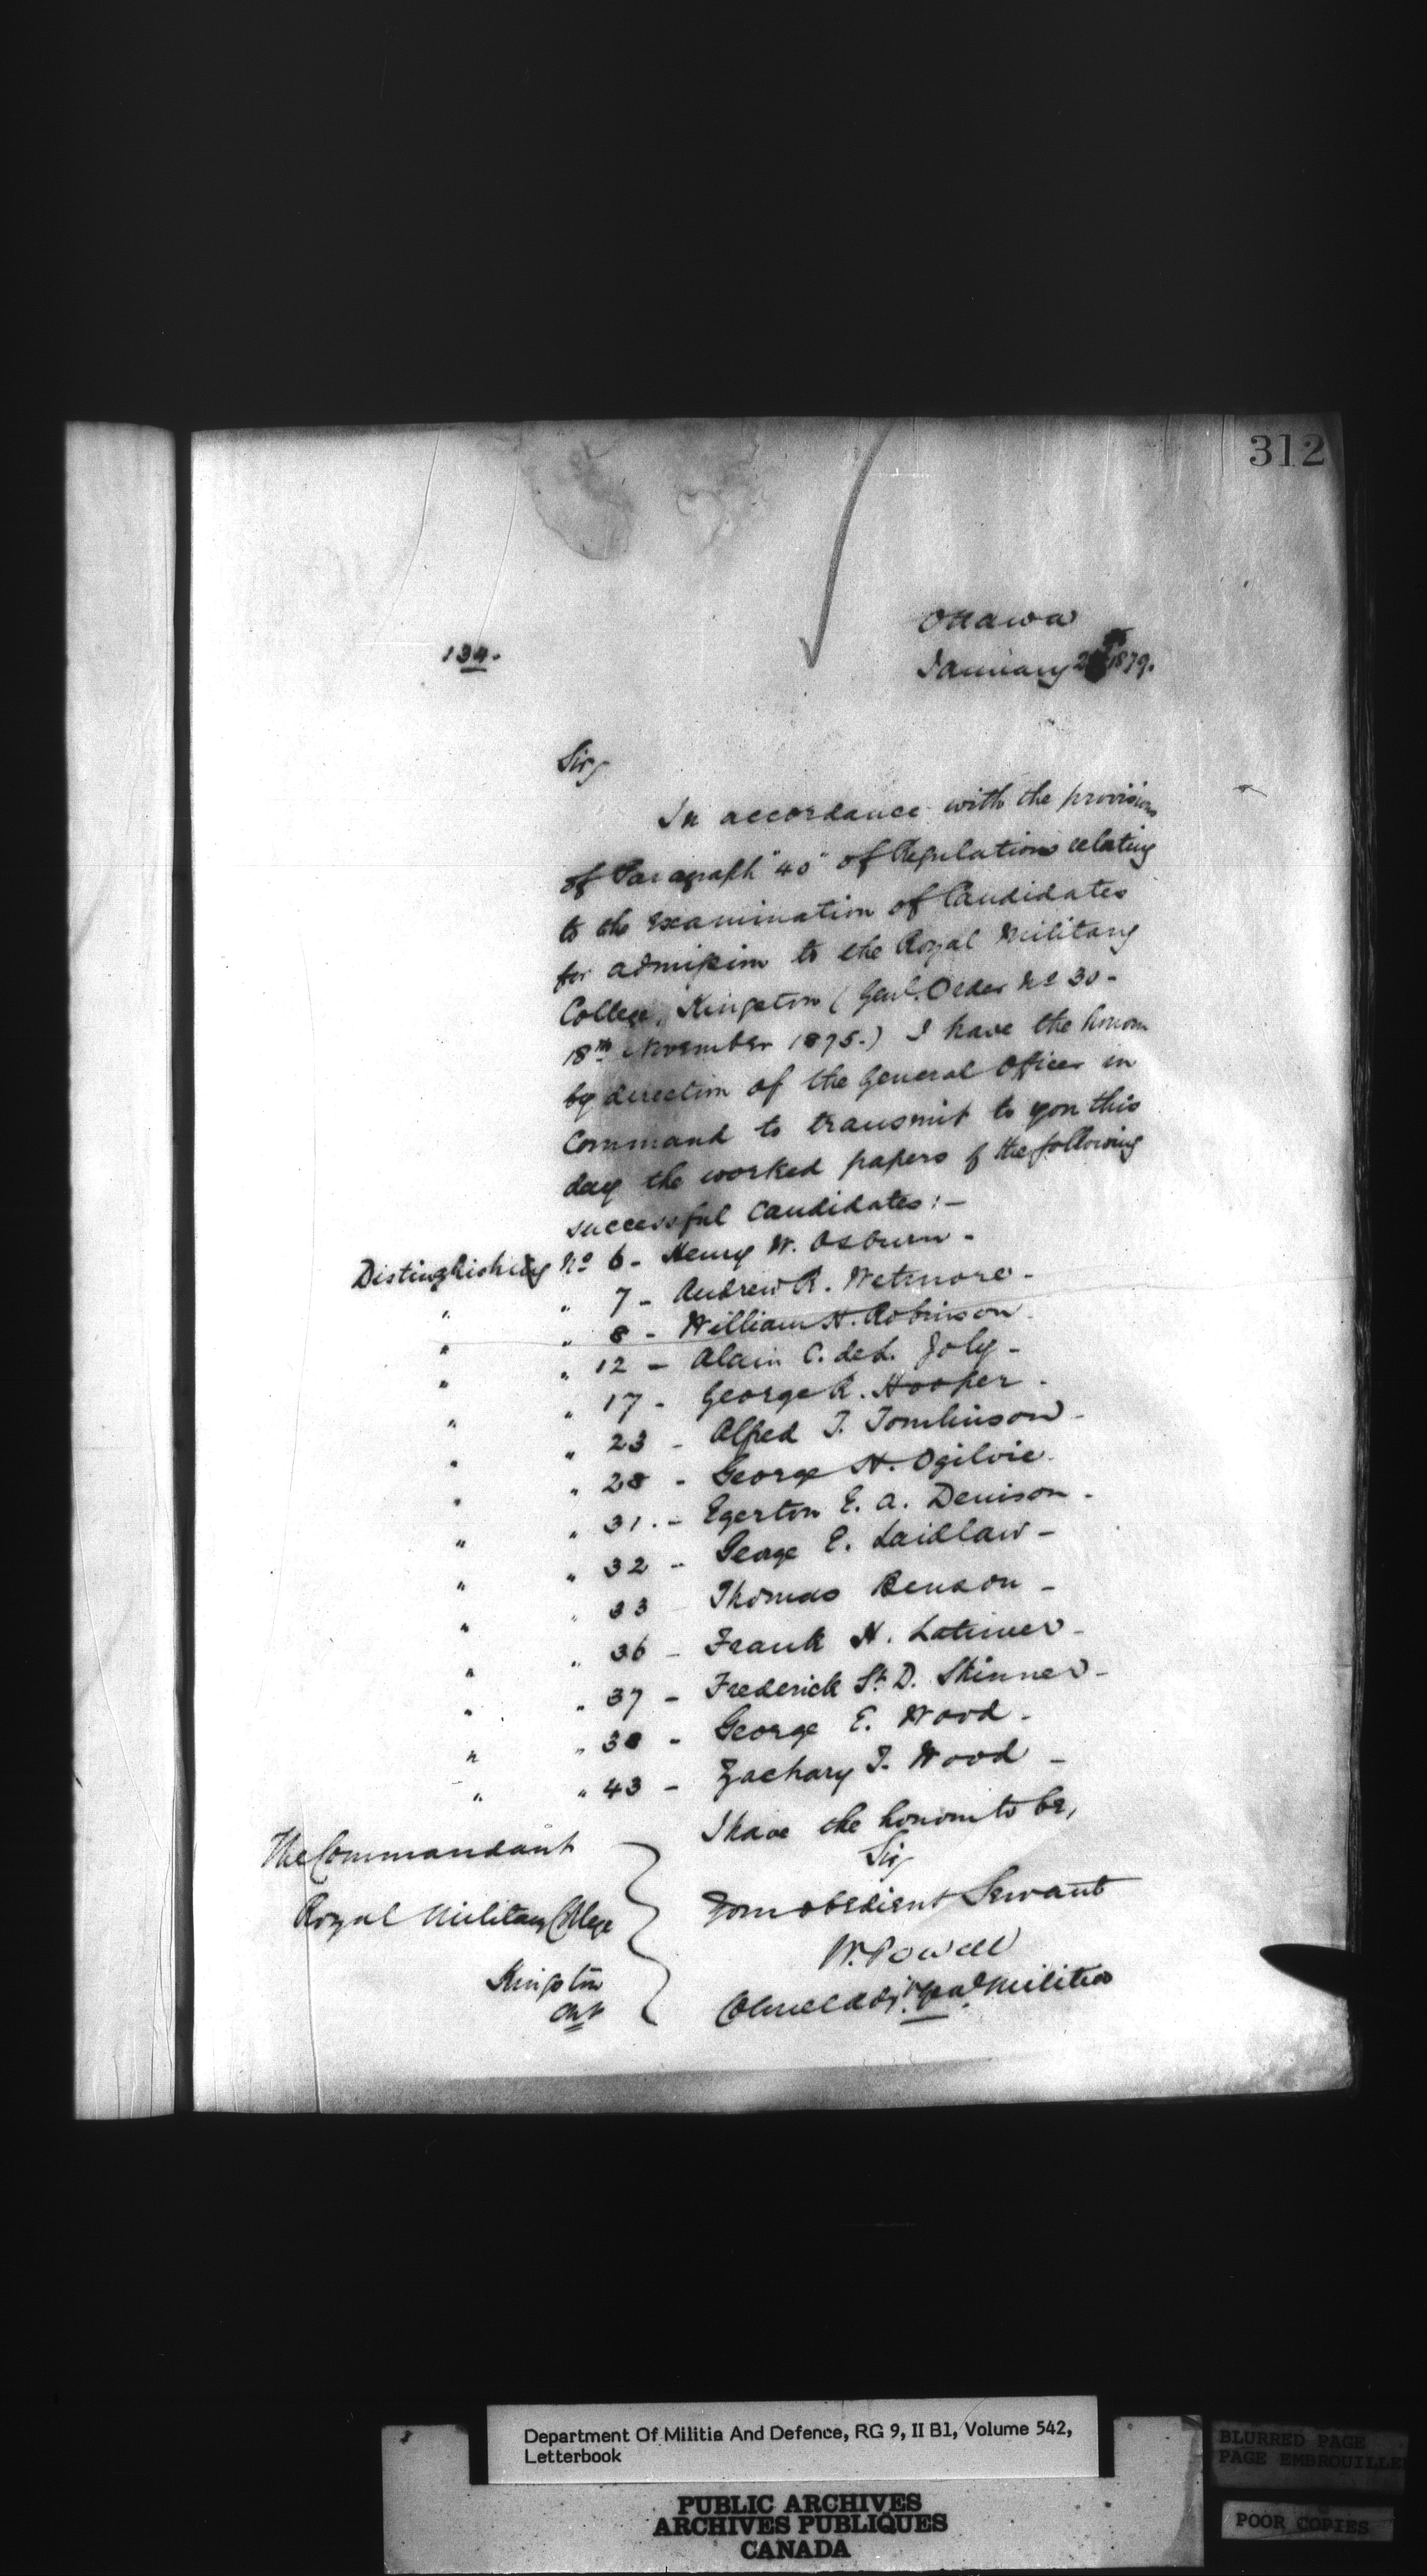 312
Ottawa
134.
January 1879.
Sir,
In accordance with the provisions
of Paragraph "40" of Regulations relating
to the Examination of Candidates
for admission to the Royal Military
College, Kingston (Genl. Order No 30-
18th November 1875.) I have the honor
by direction of the General Officer in
Command to transmit to you this
day the worked papers of the following
successful Candidates:-
Distinghishing No 6 - Henry W. Osburn -
" " 7 - Andrew R. Wetmore -
" " 8 - William H. Robinson -
" " 12 - Alain C. de L. Joly -
" " 17 - George R. Hooper -
" " 23 - Alfred J. Tomlinson -
" " 28 - George H. Ogilvie -
" " 31 - Egerton E. A. Denison -
" " 32 - George E. Laidlaw -
" " 33 Thomas Benson -
" " 36 - Frank H. Latimer -
" " 37 - Frederick St. D. Skinner -
" " 38 - George E. Wood -
" " 43 - Zachary T. Wood -
I have the honor to be,
Sir,
Your obedient Servant
W. Powell
Colonel Adjt. Genl. Militia
The Commandant
Royal Military College
Kingston
Ont
Department Of Militia And Defence, RG 9, II B1, Volume 542,
Letterbook
PUBLIC ARCHIVES
ARCHIVES PUBLIQUES
CANADA
BLURRED PAGE
PAGE EMBROUILLE
POOR COPIES